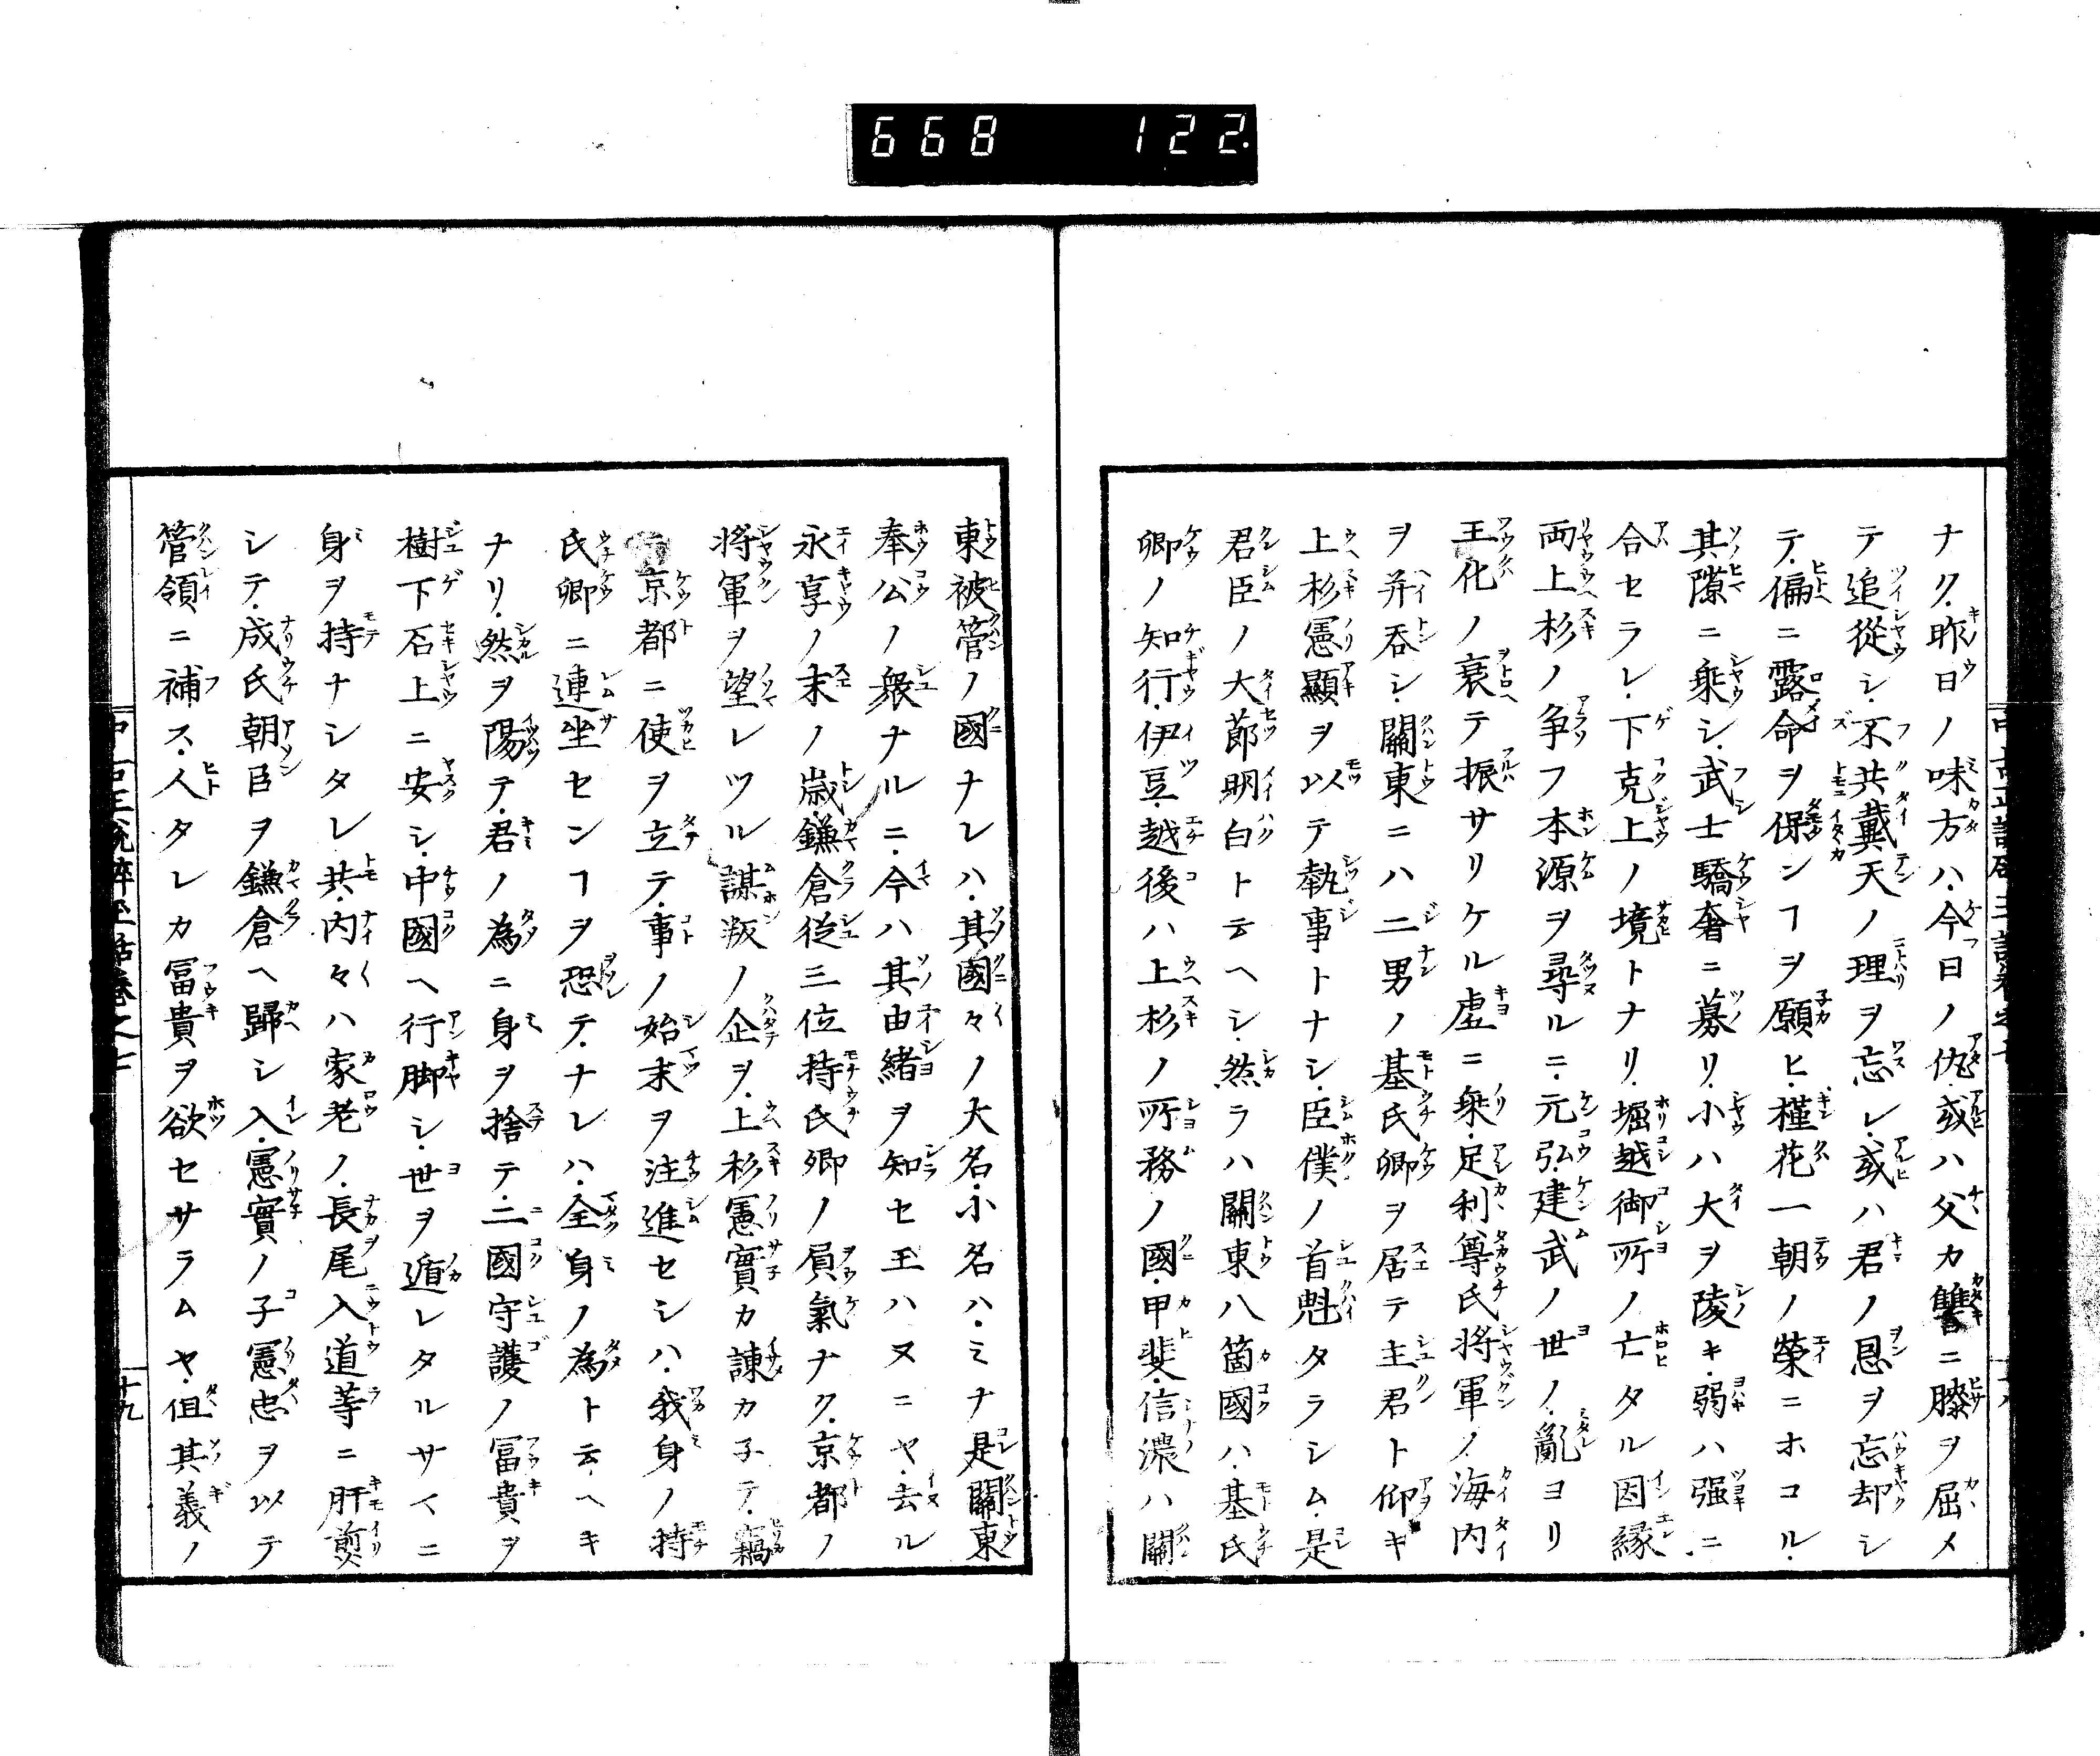 668 122.
ナク昨日ノ味方ハ今日ノ仇或ハ父カ讐ニ膝ヲ屈メ
テ追從シ不共戴天ノ理ヲ忘レ或ハ君ノ恩ヲ忘却シ
テ偏ニ露命ヲ保ンヿヲ願ヒ槿花一朝ノ榮ニホコル
其隙ニ乗シ武士驕奢ニ募リ小ハ大ヲ陵キ弱ハ强ニ
合セラレ下克上ノ境トナリ堀越御所ノ亡タル因縁
両上杉ノ争フ本源ヲ尋ルニ元弘建武ノ世ノ亂ヨリ
王化ノ衰テ振サリケル虚ニ乗足利尊氏将軍ノ海内
ヲ并呑シ關東ニハ二男ノ基氏卿ヲ居テ主君ト仰キ
上杉憲顯ヲ以テ執事トナシ臣僕ノ首魁タラシム是
君臣ノ大節明白ト云ヘシ然ラハ關東八箇國ハ基氏
卿ノ知行伊豆越後ハ上杉ノ所務ノ國甲斐信濃ハ關
東被管ノ國ナレハ其國々ノ大名小名ハミナ是關東
奉公ノ衆ナルニ今ハ其由緒ヲ知セ玉ハヌニヤ去ル
永享ノ末ノ歳鎌倉従三位持氏卿ノ屓氣ナク京都ノ
將軍ヲ望レツル謀叛ノ企ヲ上杉憲實カ諌カ子テ竊
京都ニ使ヲ立テ事ノ始末ヲ注進セシハ我身ノ持
氏卿ニ連坐センヿヲ恐テナレハ全身ノ為ト云ヘキ
ナリ然ヲ陽テ君ノ為ニ身ヲ捨テ二國守護ノ冨貴ヲ
樹下石上ニ安シ中國ヘ行脚シ世ヲ遁レタルサマニ
身ヲ持ナシタレ共内々ハ家老ノ長尾入道等ニ肝煎
シテ成氏朝臣ヲ鎌倉ヘ歸シ入憲實ノ子憲忠ヲ以テ
管領ニ補ス人タレカ冨貴ヲ欲セサラムヤ但其義ノ
十九